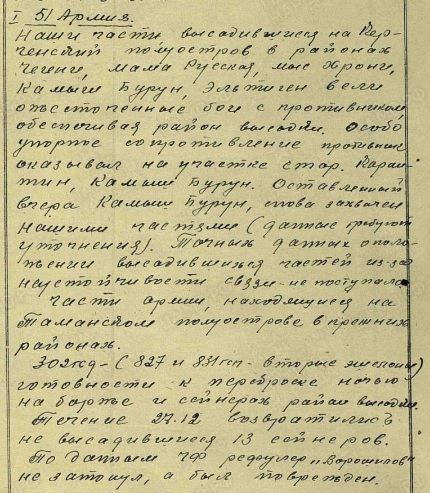 I 51 Армия.
Наши части высадившиеся на Кер-
ченский полуостров в районах
Чегене, Мама Русская, мыс Хрони,
Камыш Бурун, Эльтиген вели
ожесточенные бои с противником,
обеспечивая район высадки. Особо
упорное сопротивление противник
оказывал на участке стар. Каран-
тин, Камыш Бурун. Оставленный
вчера Камыш Бурун, снова захвачен
нашими частями (данные требуют
уточнения). Точных данных о поло-
жении высадившихся частей из-за
неустойчивости связи - не поступало
Части армии, находящиеся на
Таманском полуострове в прежних
районах.
302 гсд - (827 и 831 гсп - вторые эшелоны)
готовности к переброске ночью
на барже и сейнерах район высадки.
Течение 27.12 возвратились
не высадившиеся 13 сейнеров.
По данным ЧФ рефулер "Ворошилов"
не затонул, а был поврежден.